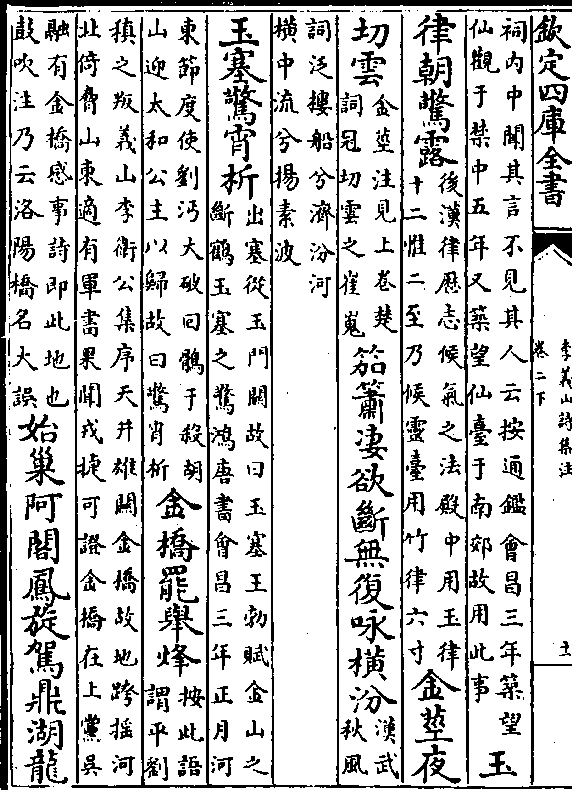 欽定四庫全書
李義山詩集注
卷二下
十一
祠内中聞其言不見其人云按通鑑會昌三年築望
仙觀于禁中五年又築望仙臺于南郊故用此事
玉
律朝驚露
後漢律厯志候氣之法殿中用玉律
十二惟二至乃候靈臺用竹律六寸
金莖夜
切雲
金莖注見上卷楚
詞冠切雲之崔嵬
笳簫淒欲斷無復咏橫汾
漢武
秋風
詞泛樓船兮濟汾河
橫中流兮揚素波
玉塞驚宵析
出塞從玉門關故曰玉塞王勃賦金山之
斷鶴玉塞之驚鴻唐書會昌三年正月河
東節度使劉沔大破回鶻于殺胡
山迎太和公主以歸故曰驚宵析
金橋罷舉烽
按此語
謂平劉
稹之叛義山李衛公集序天井雄關金橋故地跨搖河
北倚脅山東適有軍書果聞戎捷可證金橋在上黨吳
融有金橋感事詩即此地也
鼓吹注乃云洛陽橋名大誤
始巢阿閣鳳旋駕鼎湖龍